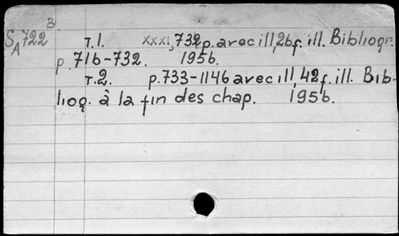 3
SA 722 T.1. XXXI,732p. avec ill, 26f. ill. Bibliogr.
p. 716-732. 1956.
T.2. p.733-1146 avec ill, 42f. ill. Bib-
liog. à la fin des chap. 1956.